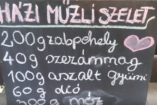 HÁZI MÜZLI SZELET
200g zabpehely
40g szezámmag
100g aszalt gyüm
60g dió
méz